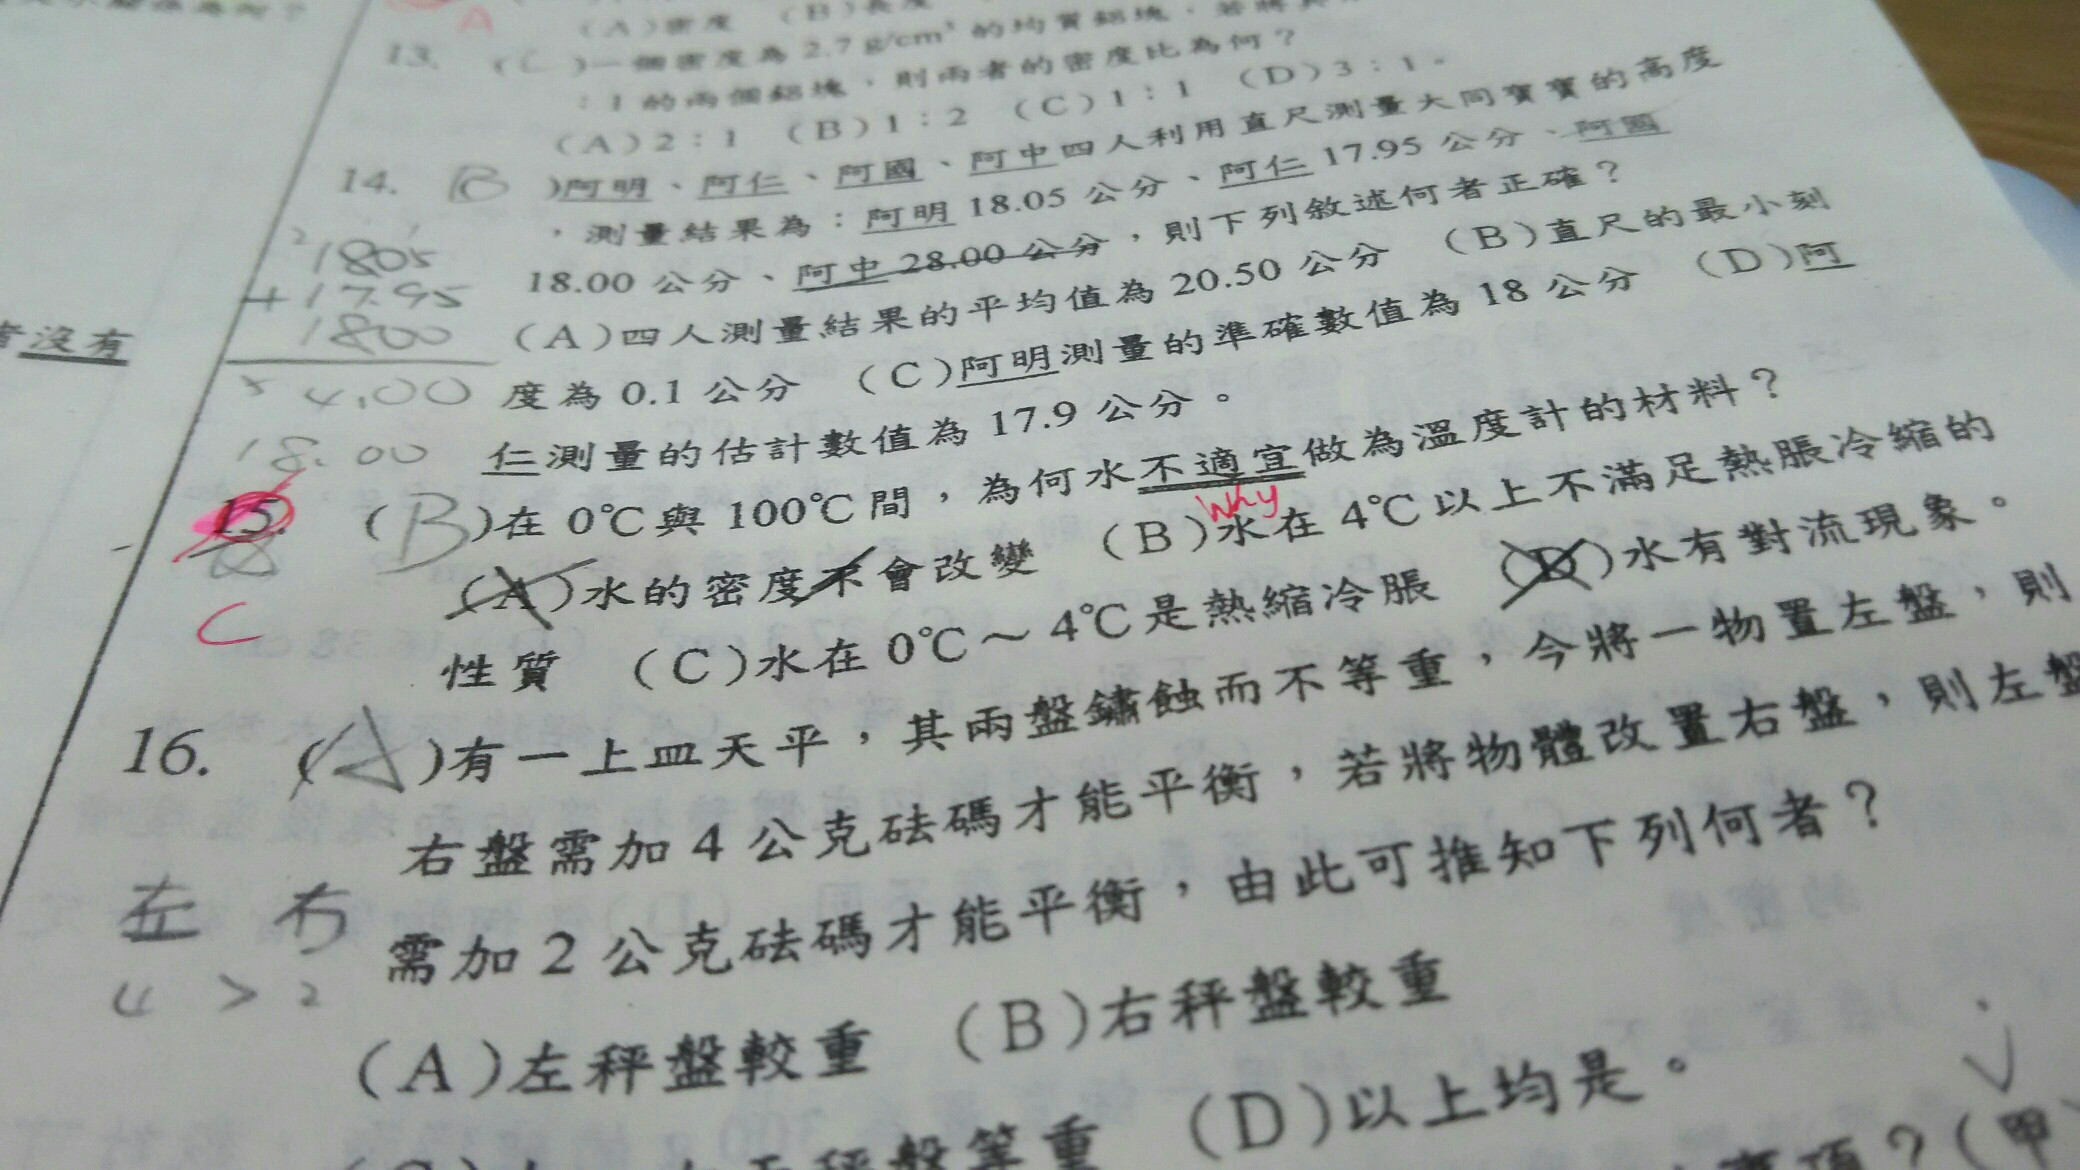 者沒有
A
(A)密度 (B)長度
13. (C)一個密度為 2.7 g/cm³ 的均質鋁塊,若將其
:1 的兩個鋁塊,則兩者的密度比為何?
(A)2:1 (B)1:2 (C)1:1 (D)3:1。
14. (B)阿明、阿仁、阿國、阿中四人利用直尺測量大同寶寶的高度
,測量結果為:阿明 18.05 公分、阿仁 17.95 公分、阿國
18.00 公分、阿中 28.00 公分,則下列敘述何者正確?
(A)四人測量結果的平均值為 20.50 公分 (B)直尺的最小刻
度為 0.1 公分 (C)阿明測量的準確數值為 18 公分 (D)阿
仁測量的估計數值為 17.9 公分。
1805
+17.95
1800
54.00
18.00
15. (B)在 0℃與 100℃間,為何水不適宜做為溫度計的材料?
Why
(A)水的密度不會改變 (B)水在 4℃以上不滿足熱脹冷縮的
性質 (C)水在 0℃~4℃是熱縮冷脹 (D)水有對流現象。
C
16. (A)有一上皿天平,其兩盤鏽蝕而不等重,今將一物置左盤,則
右盤需加 4 公克砝碼才能平衡,若將物體改置右盤,則左盤
需加 2 公克砝碼才能平衡,由此可推知下列何者?
左 右
4 > 2
(A)左秤盤較重 (B)右秤盤較重
秤盤等重 (D)以上均是。
事項?(甲)